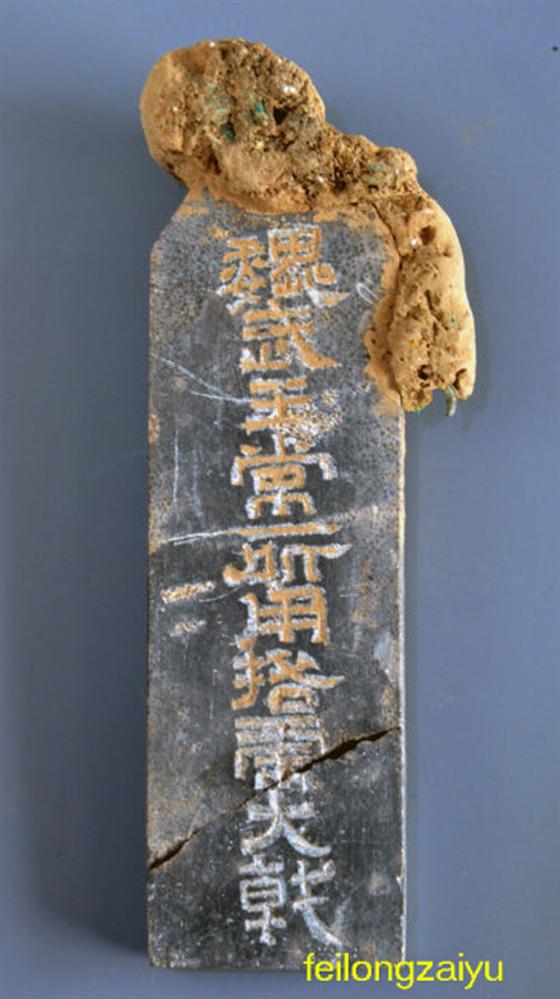 魏武王常所用挌虎大戟
feilongzaiyu